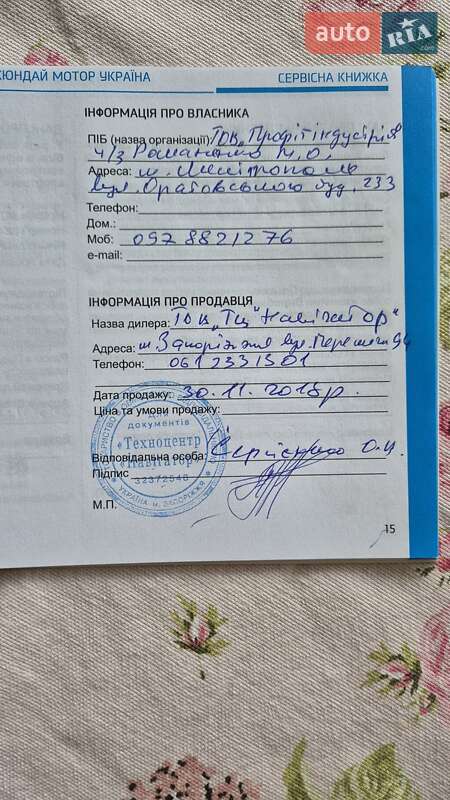 auto RIA .com
ХЮНДАЙ МОТОР УКРАЇНА
СЕРВІСНА КНИЖКА
ІНФОРМАЦІЯ ПРО ВЛАСНИКА
ПІБ (назва организації) ТОВ „Профітіндустрія
ч/з Романенко М.О.
Адреса: м. Мелітополь
вул. Оратовського буд. 233
Телефон:
Дом.:
Моб: 0978821276
e-mail:
ІНФОРМАЦІЯ ПРО ПРОДАВЦЯ
Назва дилера: ТОВ „ТЦ "Навігатор"
Адреса: м. Запоріжжя вул. Перемоги 94
Телефон: 0612331301
Дата продажу: 30.11.2018р.
Ціна та умови продажу:
Відповідальна особа: О.И.
Підпис
М.П.
Для
документів
«Техноцентр
«Навігатор»
32372548
УКРАЇНА м. ЗАПОРІЖЖЯ
15